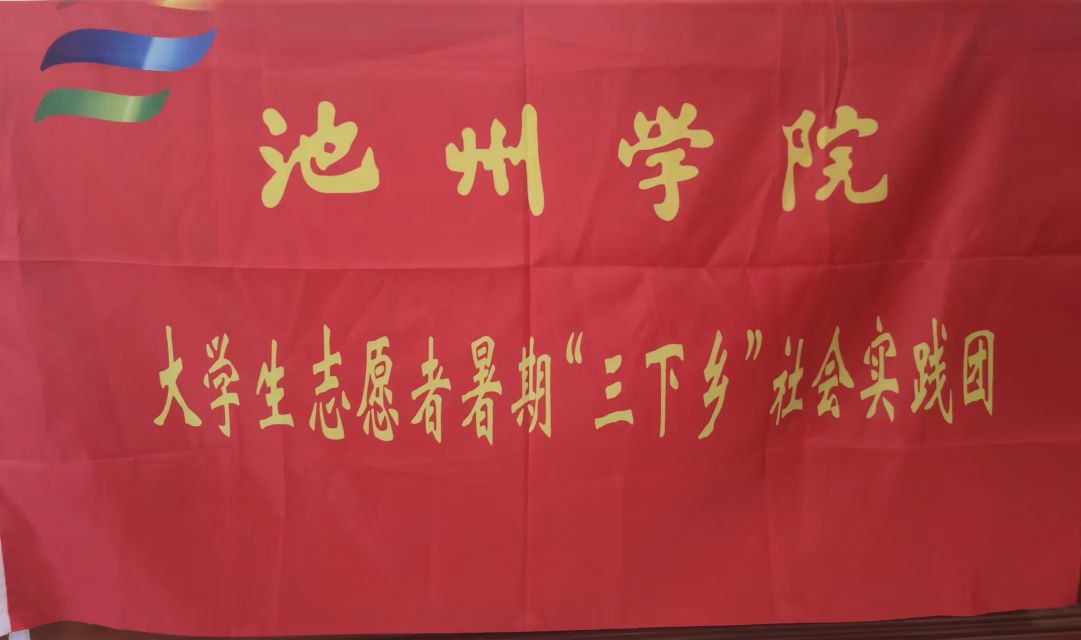 池州学院
大学生志愿者暑期“三下乡”社会实践团